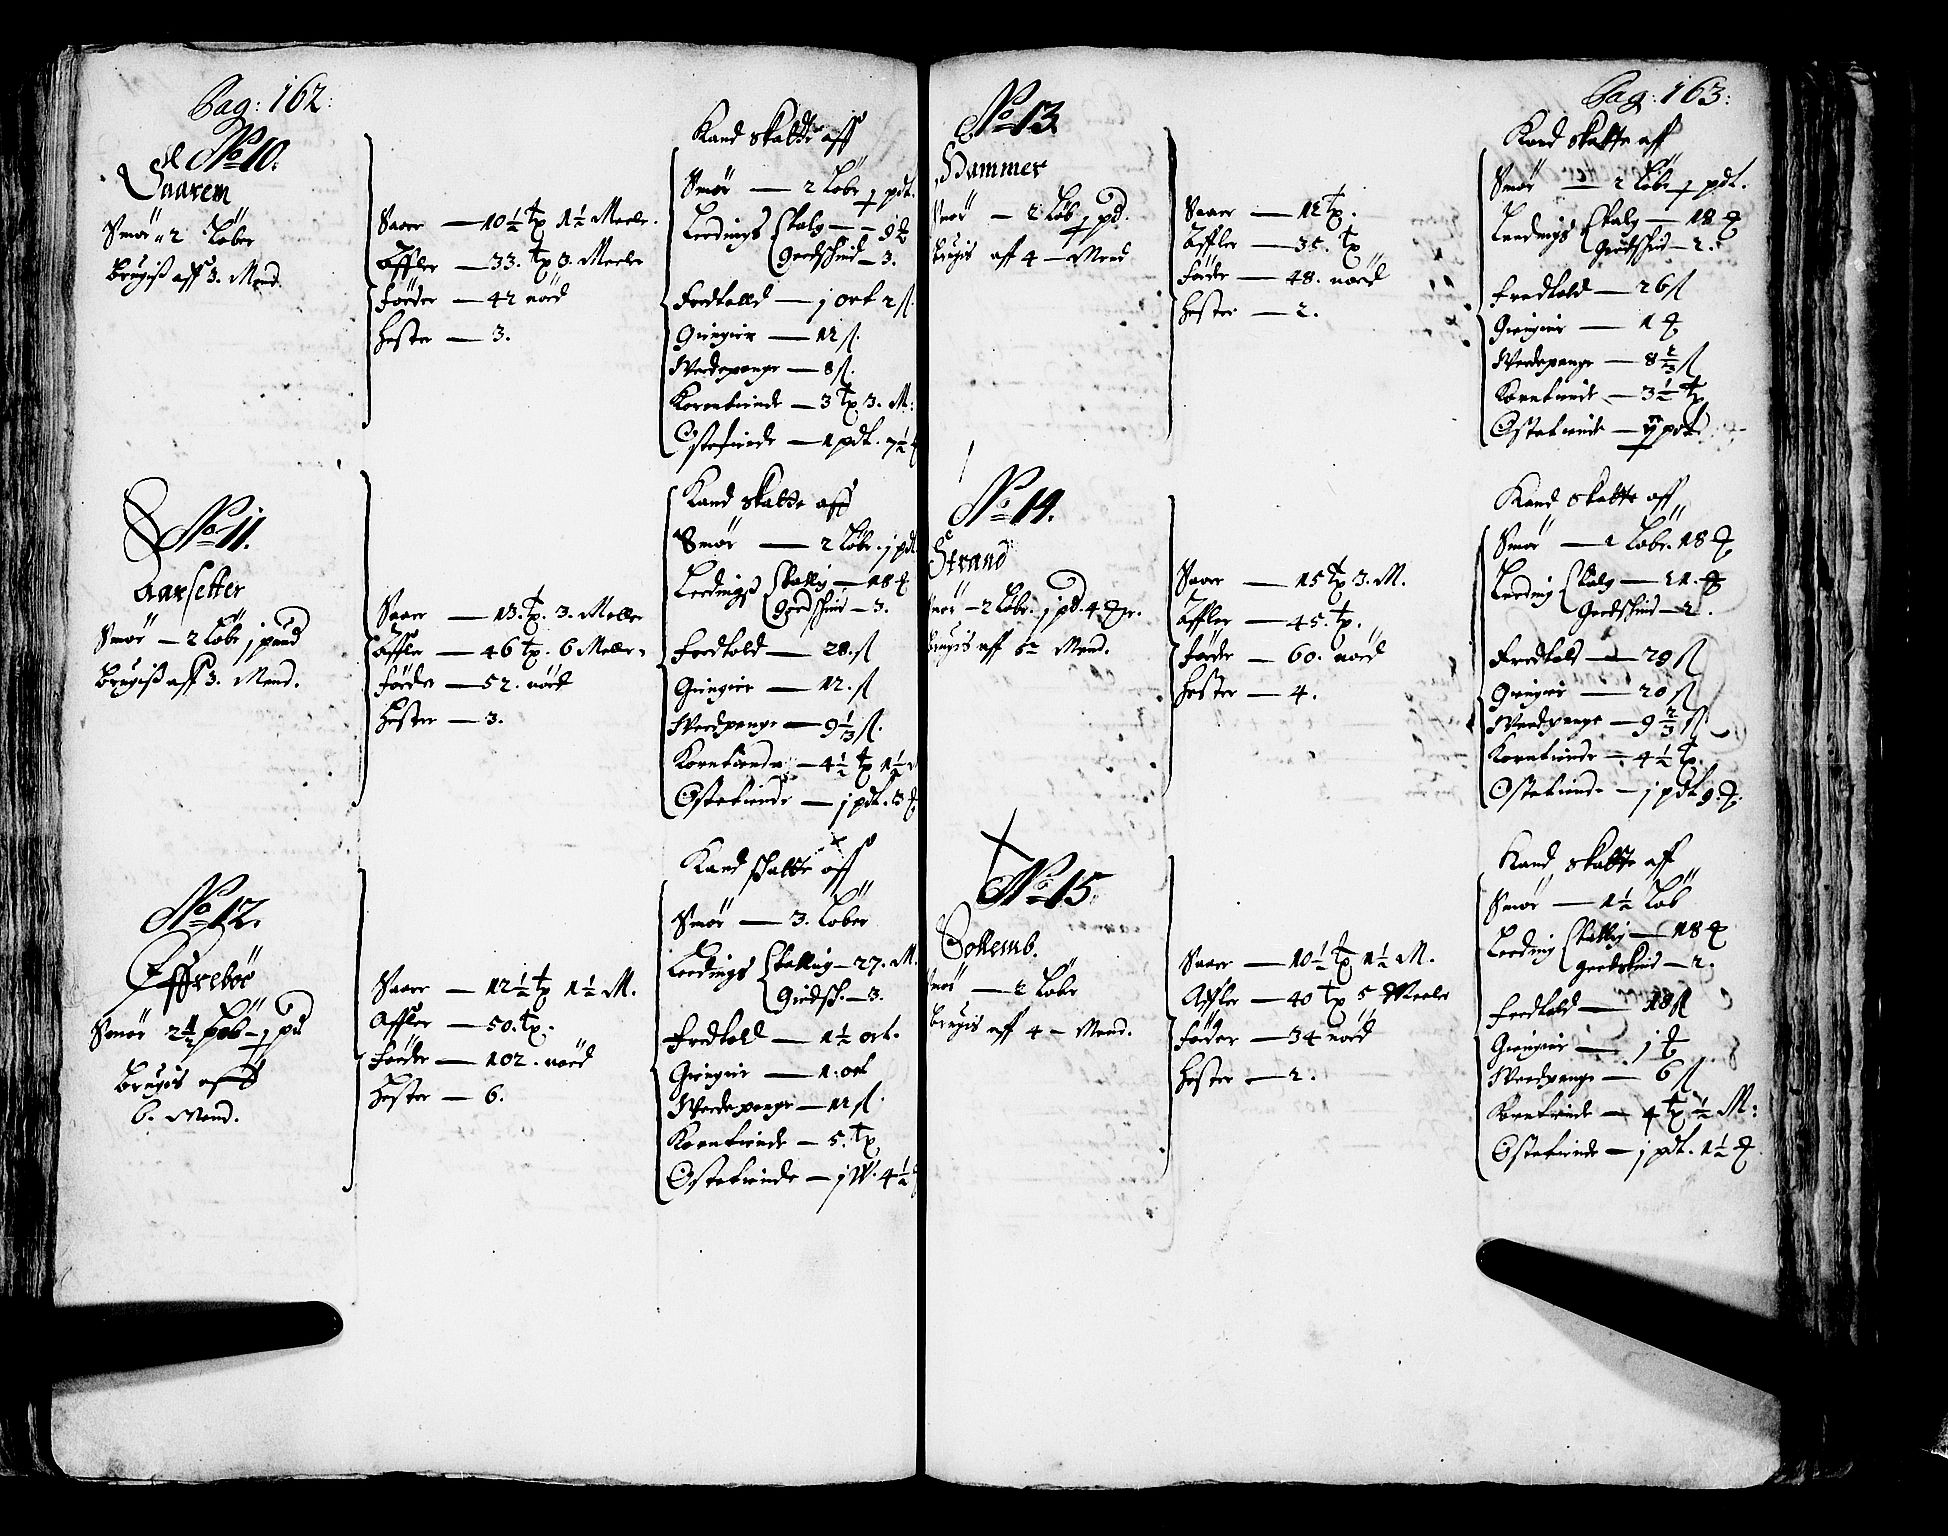 Pag: 162:
No 10.
Aaarem
Smör 2 Løber
Brugiß aff 3. Mend.
Saaer — 10½ tr 1½ Meeler.
Affler — 33. tr 3. Meeler
Føeder — 42 nöed
Hester — 3.
Kand skatte aff
Smör — 2 Løbe j pdt.
Leedings Skalg — 9
Geedschind — 3.
Foedkalld — j ort 2 ß.
Giengier — 12 ß.
Werdepenge — 8 ß.
Korntiende — 3 tr 3. M:
Ostetiende — 1 pdt. 7½
No 11.
Aarsetter
Smör — 2 Løbe j pund
Brugiß aff 3. Mend.
Saaer — 13. tr. 3. Meller
Affler — 46 tr. 6 Meller
Føeder — 52. nöed
Hester — 3.
Kand skatte aff
Smör — 2 Løbe. j pdt
Leedingß Skallig — 18
Geedschind — 3.
Foedkald — 28. ß
Giengier — 12. ß
Werdpenge — 9⅓ ß.
Korntiende — 4½ tr 1½
Ostetiende — j pdt. 3
No 12.
Effrebøe
Smör 2½ Løb — j pu
Brugis aff
6. Mend.
Saaer — 12½ tr 1½ M.
Affler — 50. tr.
Føeder — 102. nöed
Hester — 6.
Kand skatte aff
Smör — 3. Løber
Leedings Skallig — 27. M.
Giedsch. — 3.
Foedkald — 1½ ort.
Giengier — 1. ort
Werdepenge — 12 ß.
Korntiende — 5. tr
Ostetiende — j W. 4½
Pag: 163:
No 13.
Hammer
Smör — 2 Løb j pd.
Brugis aff 4 — Mend
Saaer — 12 tr.
Affler — 35. tr
Føeder — 48. nöed
Hester — 2.
Kand skatte aff
Smör — 2 Løbe j pdt.
Leedings Skalg — 18
Geedschind — 2.
Foedkald — 26 ß
Giengier — 1
Werdepenge — 8⅔ ß
Korntiende — 3½ tr
Ostetiende — j pdt.
No 14.
Strand
Smör — 2 Løbe. j pd. 4
Brugis aff 6 Mend.
Saaer — 15 tr 3. M.
Affler — 45. tr.
Føeder — 60. nöed
Hester — 4.
Kand skatte aff
Smör — 2 Løbe. 18
Leeding Skalg — 21.
Geedschind — 2.
Foedkald — 29 ß
Giengier — 20 ß
Werdpenge — 9⅔ ß
Korntiende — 4½ tr.
Ostetiende — j pdt 9.
No 15.
Smör — 2 Løbe
Brugis aff 4 — Mend.
Saaer — 10½ tr 1½ M.
Affler — 40 tr 5 Meeler
Føeder — 34 nöed
Hester — 2.
Kand skatte aff
Smör — 1½ Løb
Leeding Skallig — 18
Geedskind — 2.
Foedkald — 18 ß
Giengier — j
Werdpenge — 6 ß
Korntiende — 4 tr ½ M:
Ostetiende — j pdt. 1½